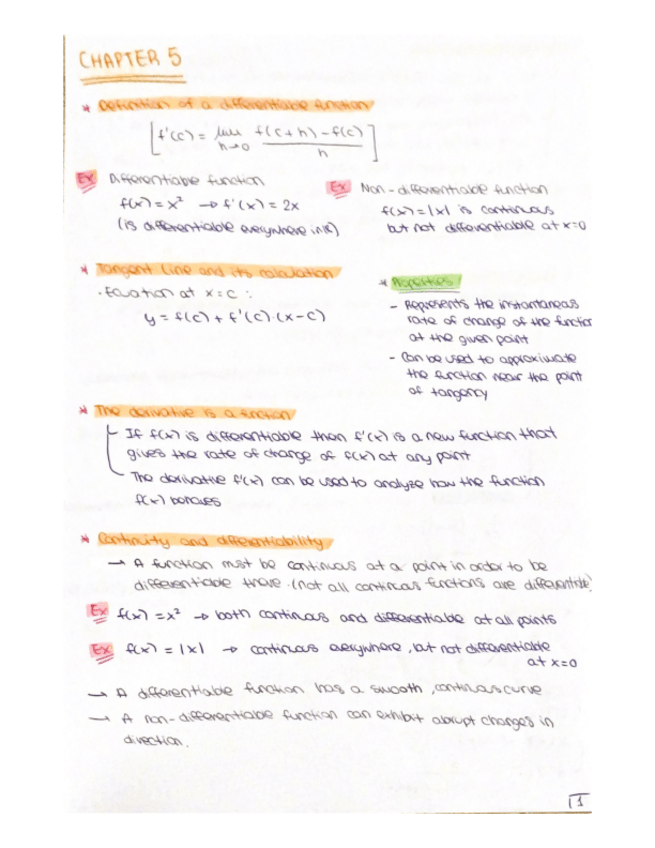 CHAPTER 5
* Definition of a differentiable function
[f'(c) = lim h→0 f(c+h) - f(c) / h]
Ex Differentiable function
f(x) = x² → f'(x) = 2x
(is differentiable everywhere in ℝ)
Ex Non-differentiable function
f(x) = |x| is continuous
but not differentiable at x=0
* Tangent line and its calculation
· Equation at x=c :
y = f(c) + f'(c)·(x-c)
* Properties
- Represents the instantaneous
rate of change of the function
at the given point
- Can be used to approximate
the function near the point
of tangency
* The derivative is a function
If f(x) is differentiable then f'(x) is a new function that
gives the rate of change of f(x) at any point
The derivative f'(x) can be used to analyze how the function
f(x) behaves
* Continuity and differentiability
→ A function must be continuous at a point in order to be
differentiable there. (not all continuous functions are differentiable)
Ex f(x) = x² → both continuous and differentiable at all points
Ex f(x) = |x| → continuous everywhere, but not differentiable
at x=0
→ A differentiable function has a smooth, continuous curve
→ A non-differentiable function can exhibit abrupt changes in
direction.
1